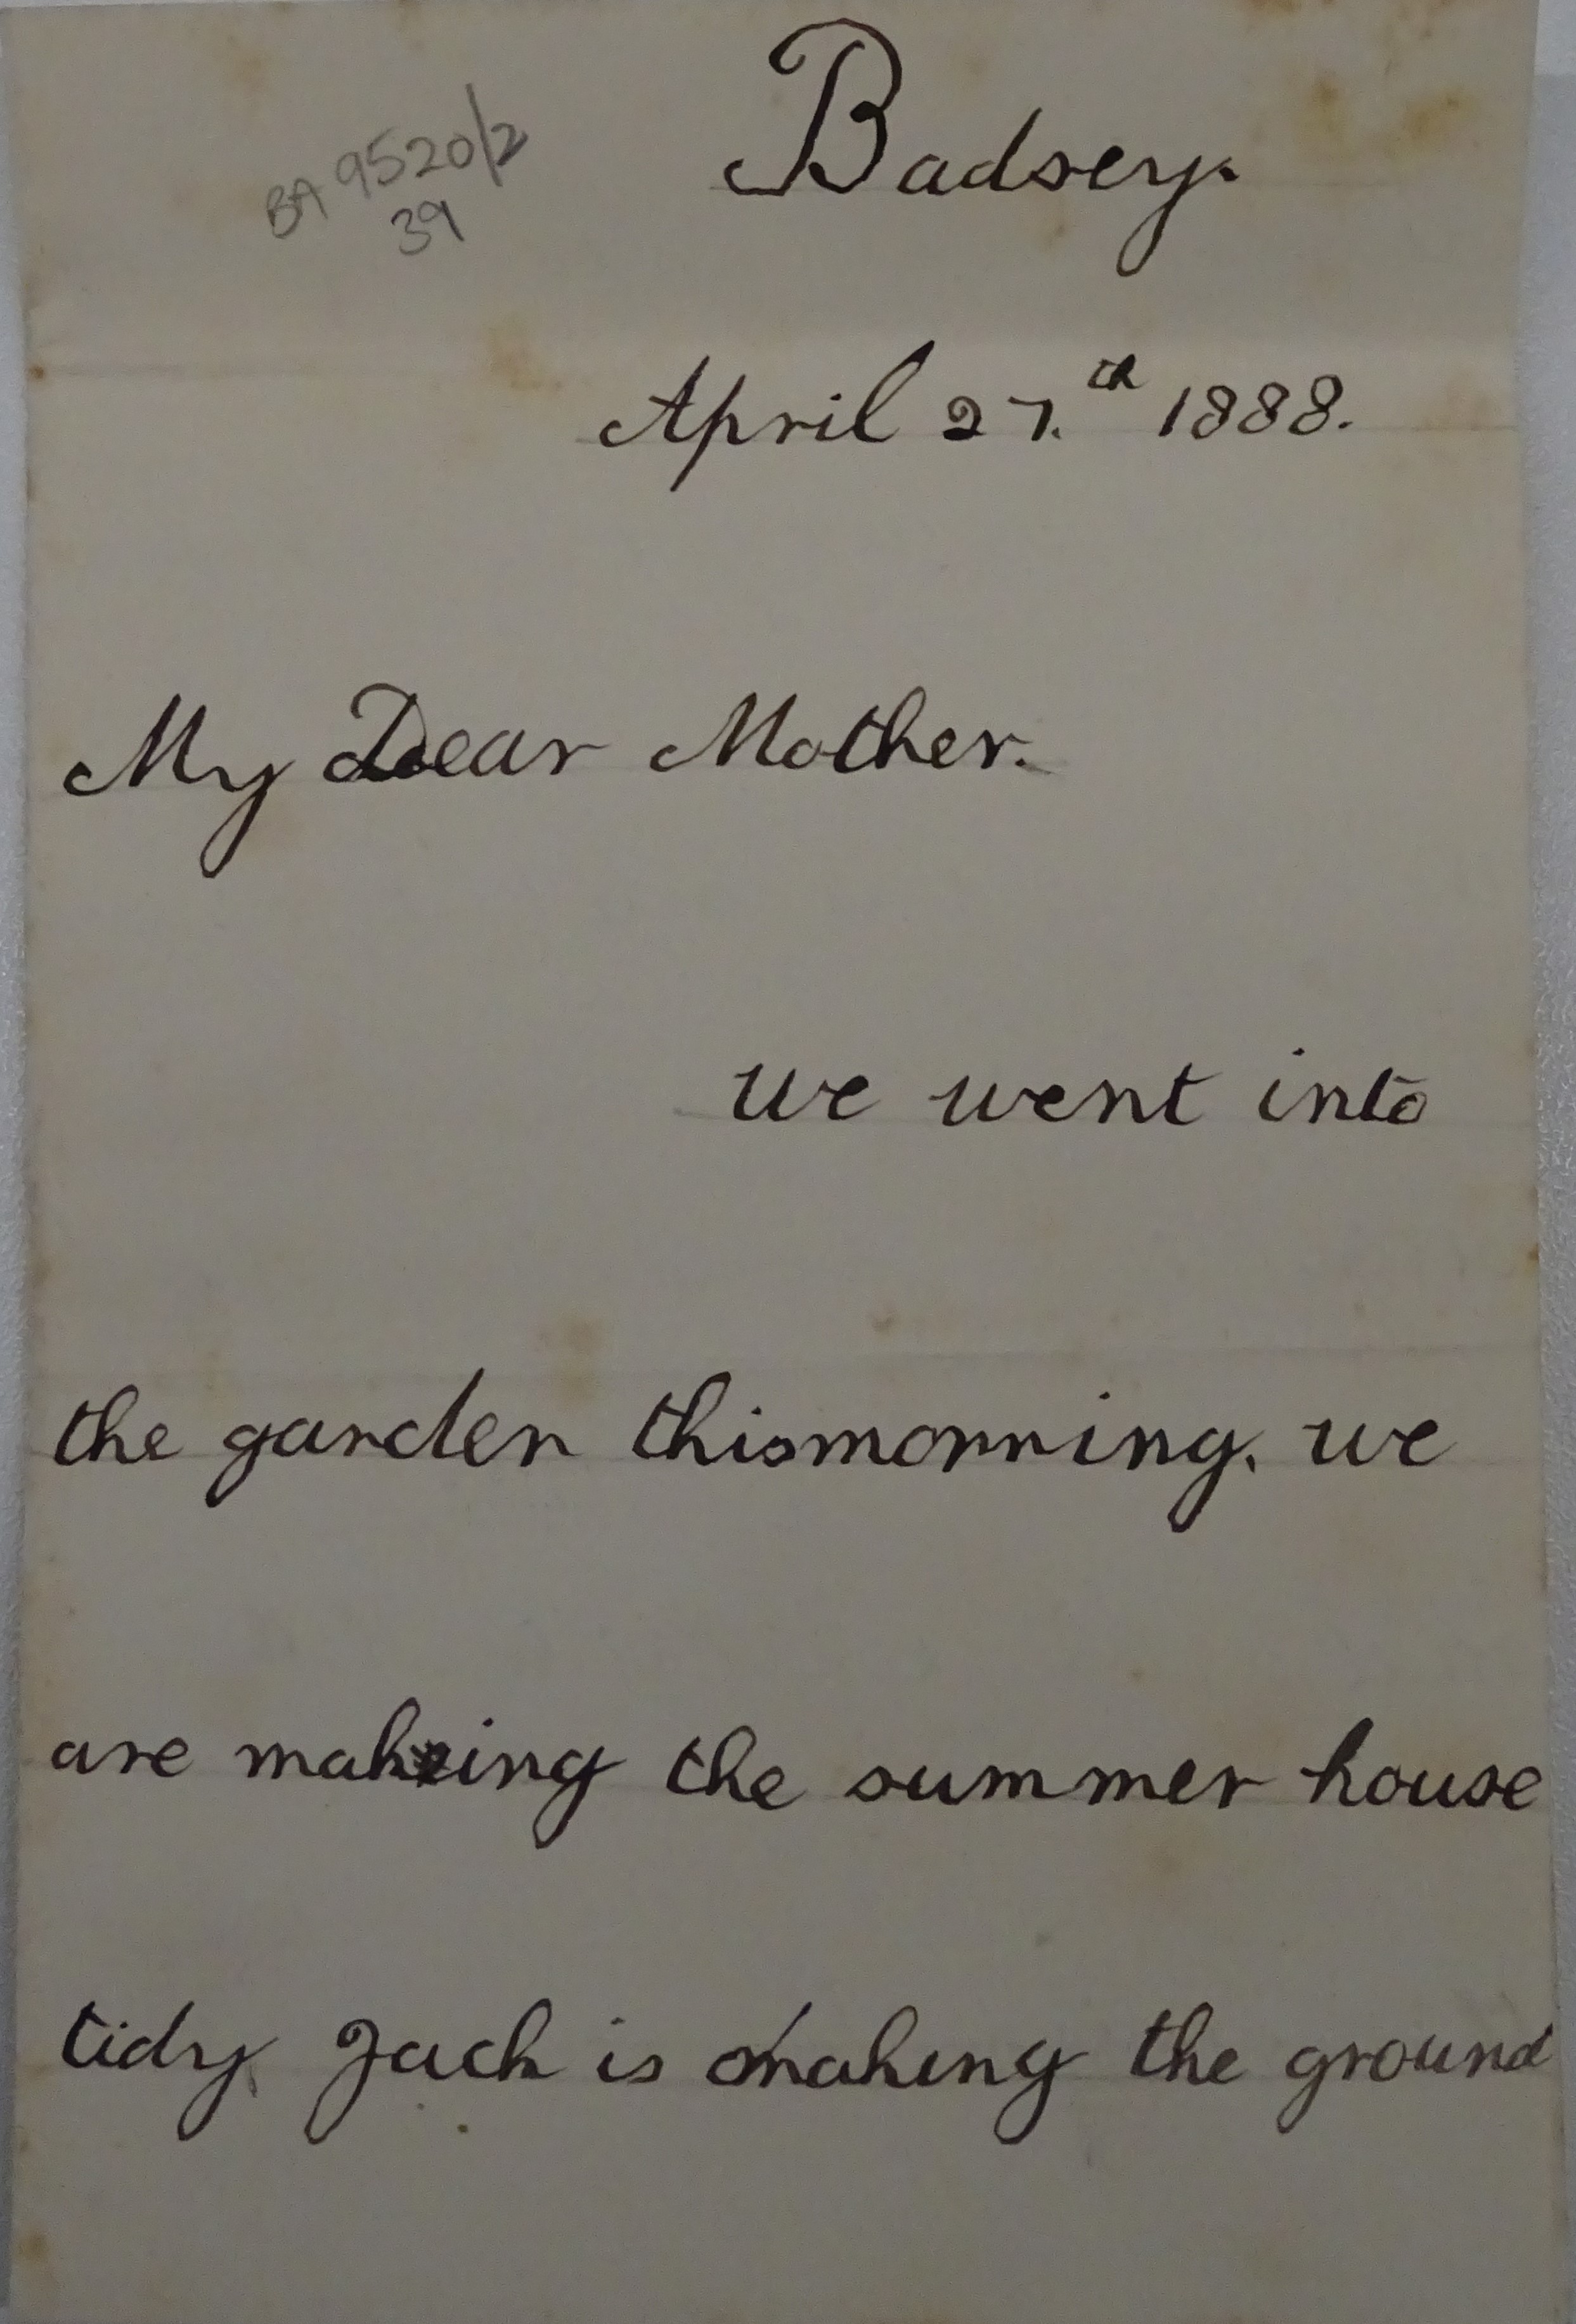 BA 9520/2
39
Badsey.
April 27.th 1888.
My Dear Mother.
we went into
the garden thismorning. we
are making the summer house
tidy Jack is making the ground